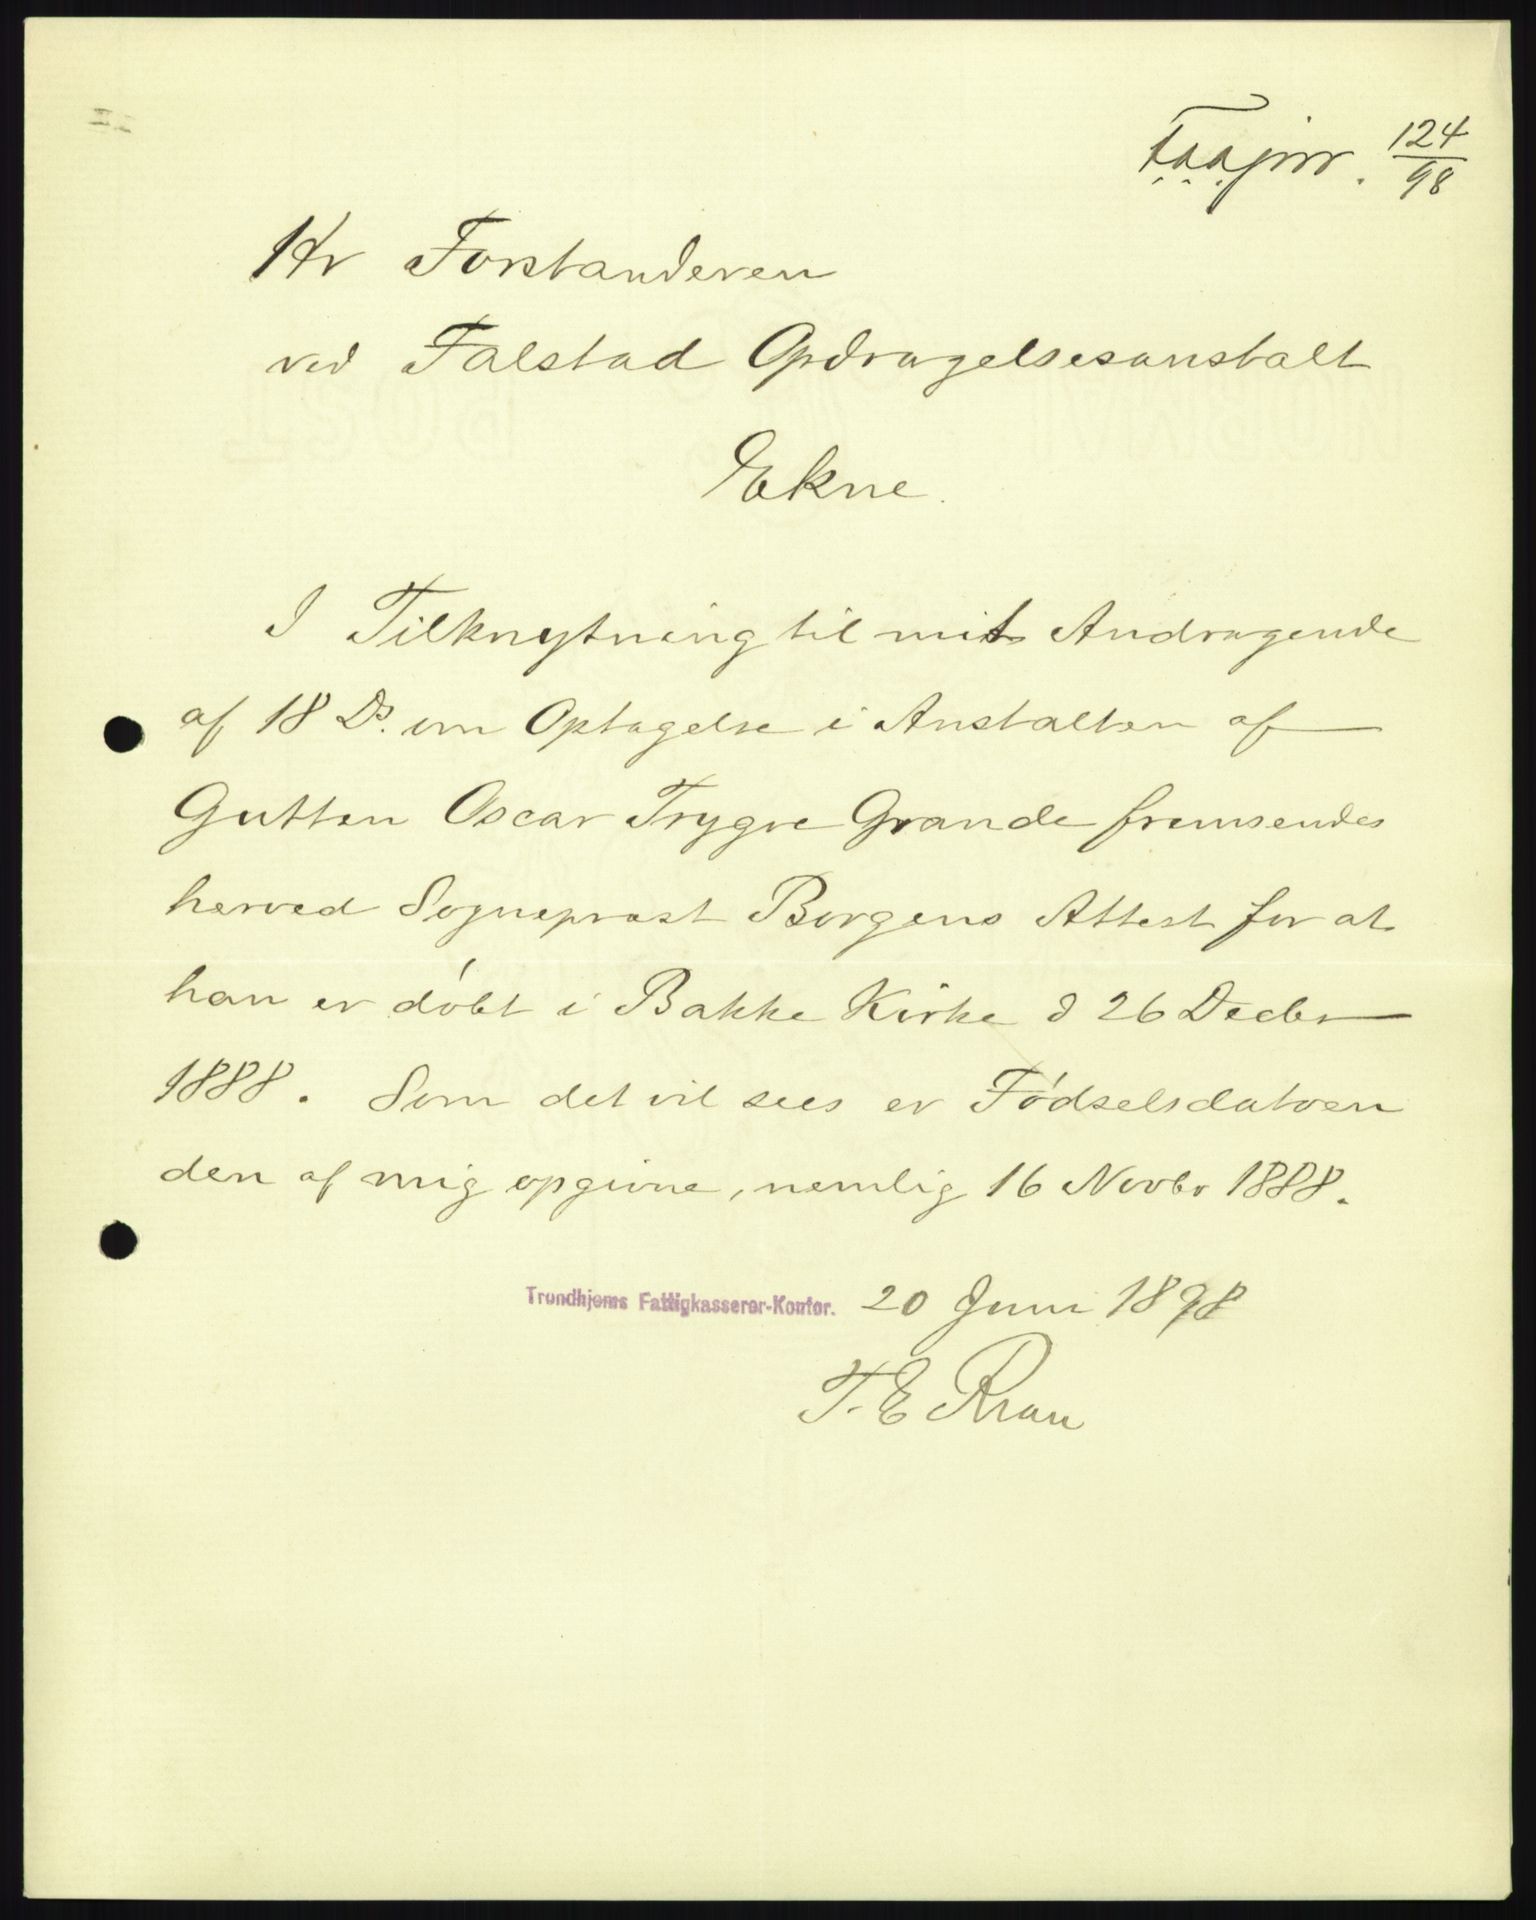 F.a.a.jnr. 124/98
Hr Forstanderen
ved Falstad Opdragelsesanstalt
Ekne.
I Tilknytning til mit Andragende
af 18 Ds. om Optagelse i Anstalten af
Gutten Oscar Trygve Grande fremsendes
herved Sogneprest Borgens Attest for at
han er døbt i Bakke Kirke d 26 Decbr
1888. Som det vil sees er Fødselsdatoen
den af mig opgivne, nemlig 16 Novbr 1888.
Trondhjems Fattigkasserer-Kontor. 20 Juni 1898
T. E